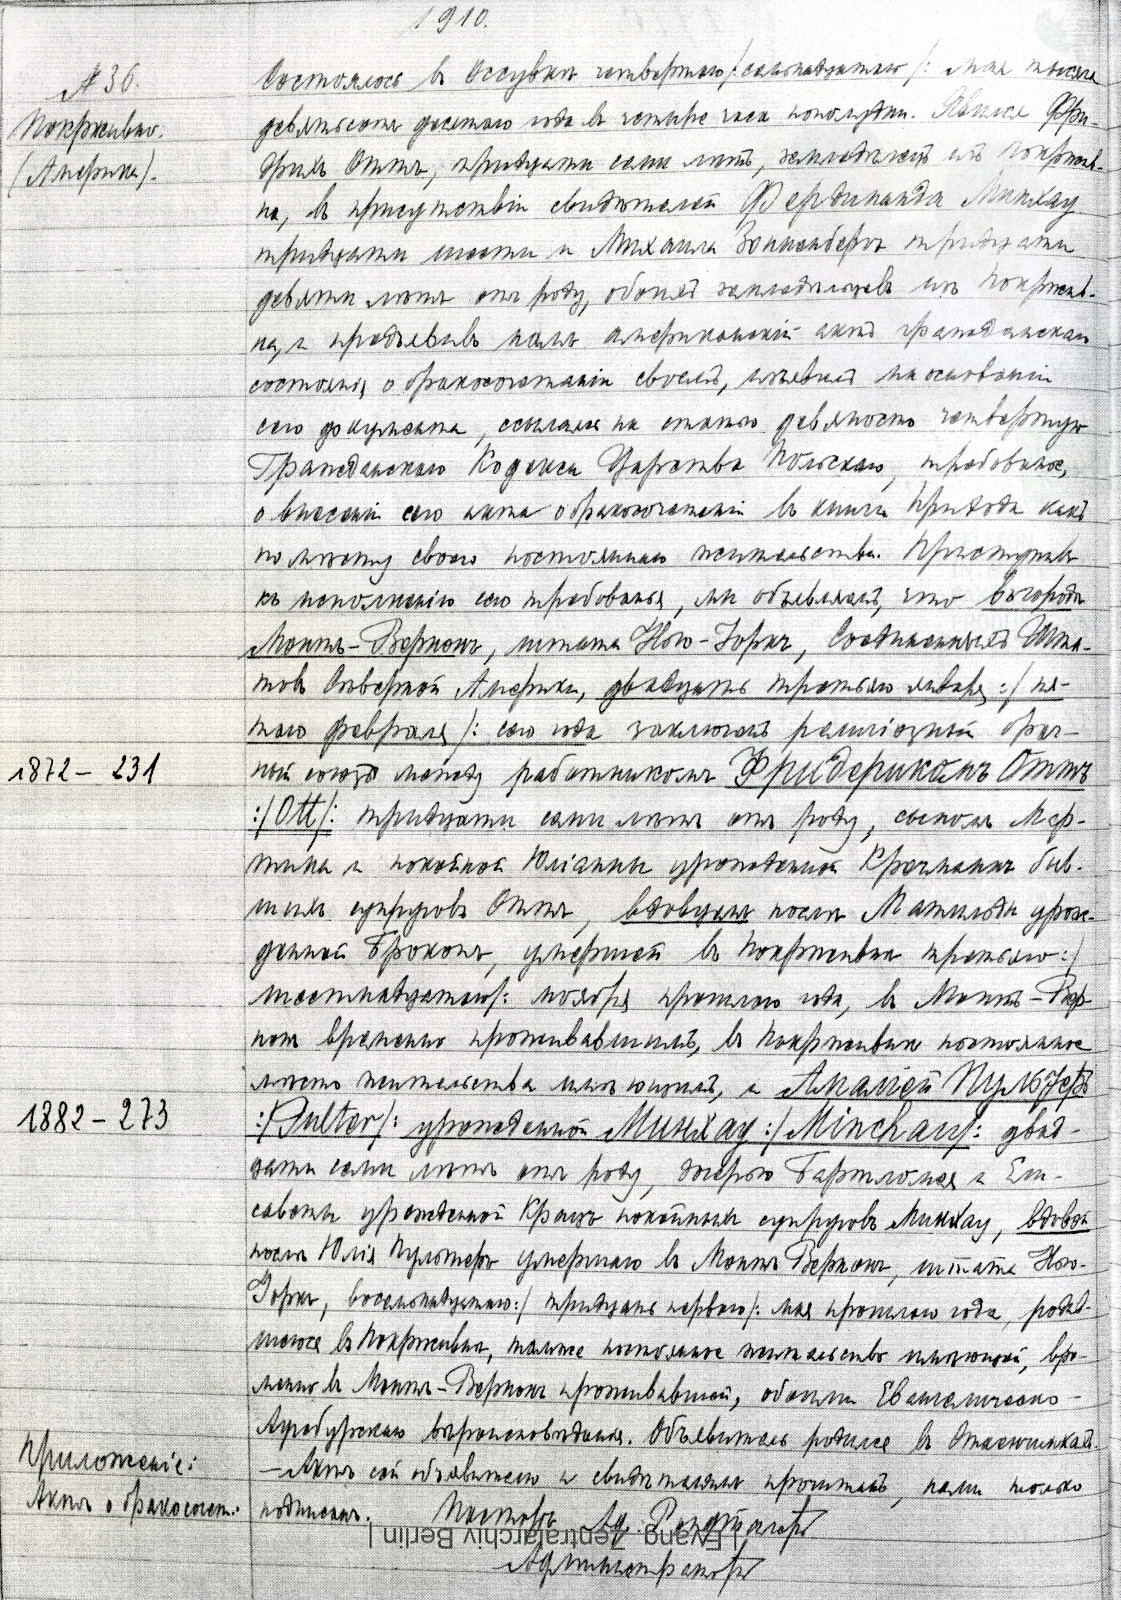 1910.
№ 36.
Покрживно.
(Америка).
Состоялось в Оссувкѣ четвертаго /: семнадцатаго /: мая тысяча
девятьсотъ десятаго года въ четыре часа пополудни. Явился Фри-
дрихъ Оттъ, тридцати семи лѣтъ, земледѣлецъ изъ Покржив-
на, въ присутствіи свидѣтелей Фердинанда Минхау
тридцати шести и Михаила Зонненбергъ тридцати
девяти лѣтъ отъ роду, обоихъ земледѣльцевъ изъ Покржив-
на, и предъявивъ намъ американскій актъ гражданскаго
состоянія о бракосочетаніи своемъ, изъявилъ на основаніи
сего документа, ссылаясь на статью девяносто четвертую
Гражданскаго Кодекса Царства Польскаго, требованіе,
о внесеніи сего акта о бракосочетаніи въ книги прихода какъ
по мѣсту своего постояннаго жительства. Приступивъ
къ исполненію сего требованія, мы объявляемъ, что въ городѣ
Монтъ-Вернонъ, штата Нью-Іоркъ, Соединенныхъ Шта-
товъ Сѣверной Америки, двадцать третьяго января :/ пя-
таго февраля /: сего года заключенъ религіозный брач-
ный союзъ между работникомъ Фридерикомъ Оттъ
1872 – 231
:/ Ott /: тридцати семи лѣтъ отъ роду, сыномъ Мар-
тина и покойной Юліанны урожденной Кречманъ быв-
шихъ супруговъ Оттъ, вдовцемъ послѣ Матильды урож-
денной Броконъ, умершей въ Покрживнѣ третьяго :/
шестнадцатаго /: ноября прошлаго года, въ Монтъ-Вер-
нонъ временно проживавшимъ, въ Покрживнѣ постоянное
мѣсто жительства имѣющимъ, и Амаліей Пультеръ
1882 – 273
:/ Pulter /: урожденной Минхау :/ Minchau /: двад-
цати семи лѣтъ отъ роду, дочерью Бартломея и Ели-
саветы урожденной Крацъ покойныхъ супруговъ Минхау, вдовой
послѣ Юлія Пультеръ умершаго въ Монтъ Вернонъ, штата Нью-
Іоркъ, восемнадцатаго :/ тридцать перваго /: мая прошлаго года, родив-
шеюся въ Покрживнѣ, тамже постоянное жительство имѣющей, вре-
менно въ Монтъ-Вернонъ проживавшей, обоими Евангелическо-
Аугсбургскаго вѣроисповѣданія. Объявитель родился въ
Приложеніе:
– Актъ сей объявителю и свидѣтелямъ прочитанъ, нами только
Актъ о бракосочет.
подписанъ. Пасторъ Ад.
Администраторъ
| Evang. Zentralarchiv Berlin |